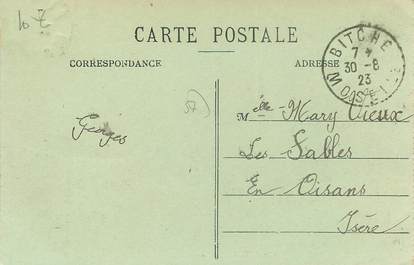 CARTE POSTALE
CORRESPONDANCE
ADRESSE
BITCHE
7 *
30-8
23
MOSELLE
Georges
57
Mlle Mary Vieux
Les Sables
En Oisans
Isère